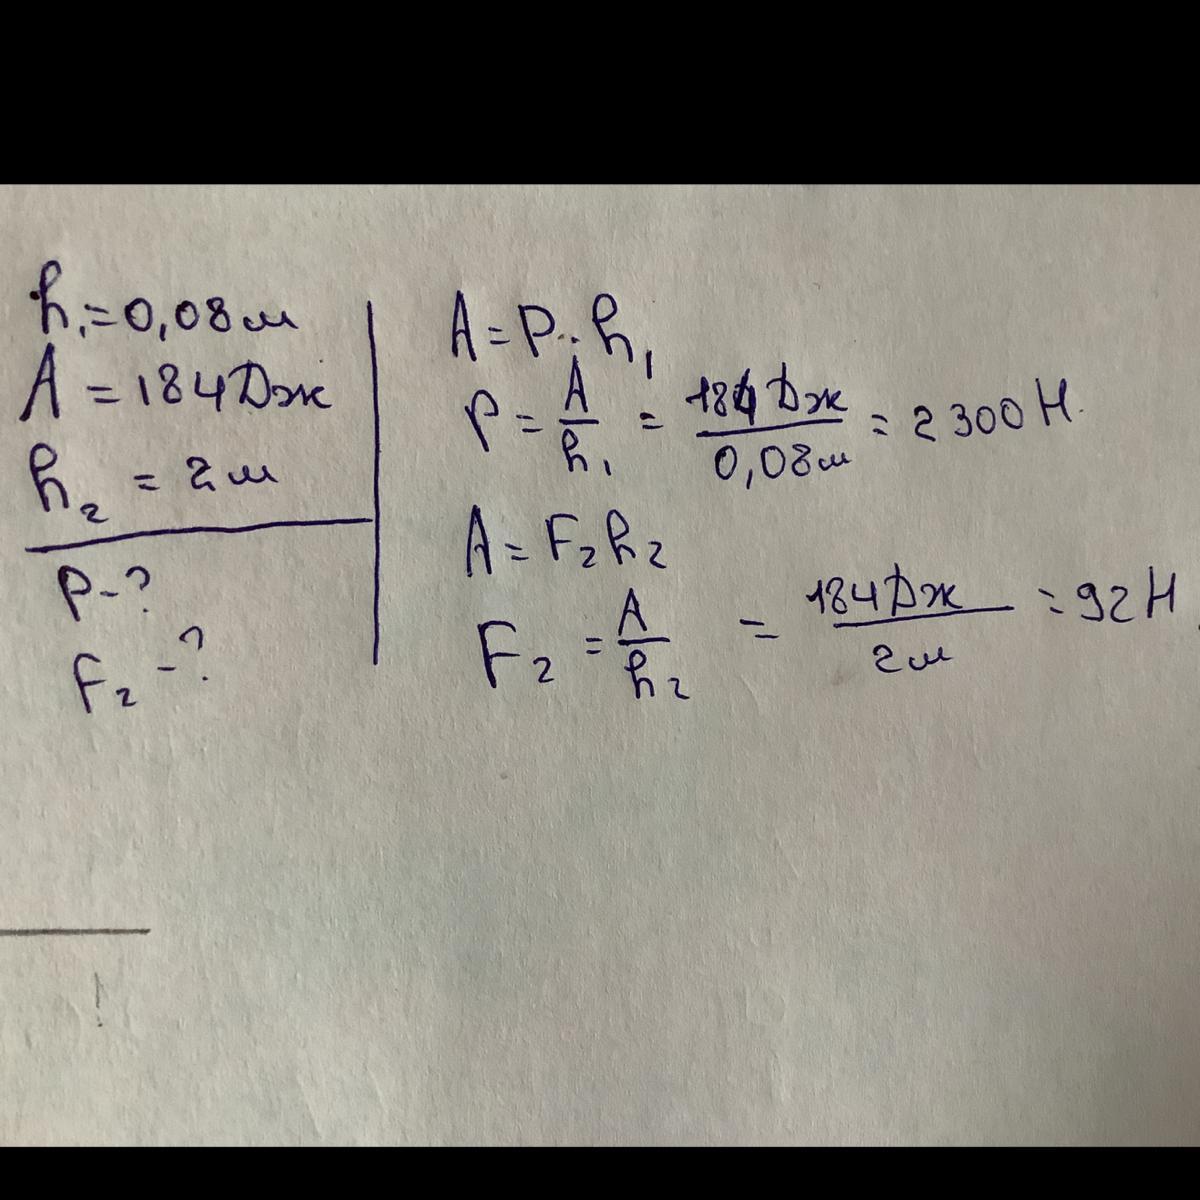 h₁=0,08м
A=184Дж
h₂=2м
P-?
F₂-?
A=P·h₁
P=A/h₁=184Дж/0,08м=2300Н.
A=F₂h₂
F₂=A/h₂=184Дж/2м=92Н.